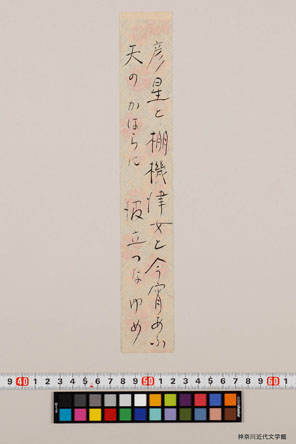 彦星と棚機津女と今宵あふ
天のかはらに波立つなゆめ
9 40 1 2 3 4 5 6 7 8 9 50 1 2 3 4 5 6 7 8 9 60 1
神奈川近代文学館